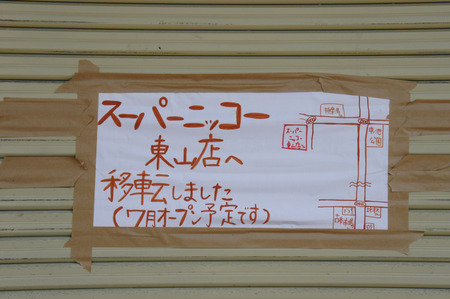 スーパーニッコー
東山店へ
移転しました
(7月オープン予定です)
スーパー
ニッコー
東山店